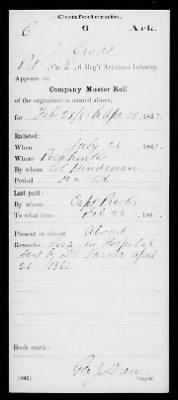 Confederate.
C 6 Ark.
J. Cross
Pvt., Co. E, 6 Reg't Arkansas Infantry.
Appears on
Company Muster Roll
of the organization named above,
for Feb 28 to Apr 30, 1863.
Enlisted:
When July 26, 1861.
Where Pocahontas
By whom Col Hindman
Period
Last paid:
By whom Capt
To what time Feb 28, 186
Present or absent Absent
Remarks: in Hospital
Sent by Dr. Turner April
25 186
Book mark:
(642) Copyist.